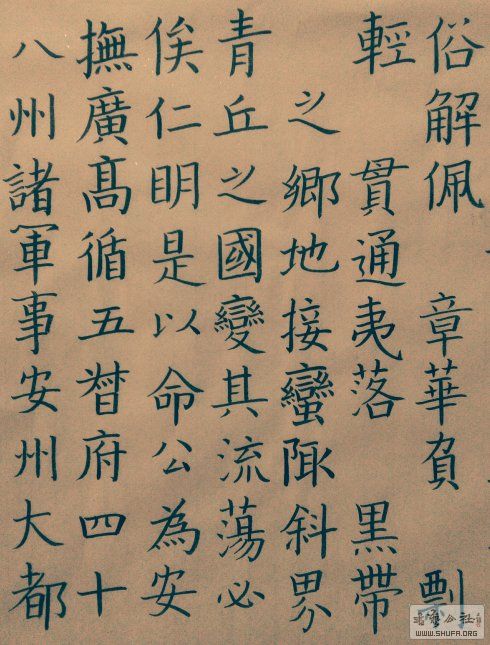 俗解佩 章華負 剽
輕 貫通夷落 黒帶
之鄉地接蠻陬斜界
青丘之國變其流蕩必
俟仁明是以命公為安
撫廣髙循五督府四十
八州諸軍事安州大都
WWW.SHUFA.ORG